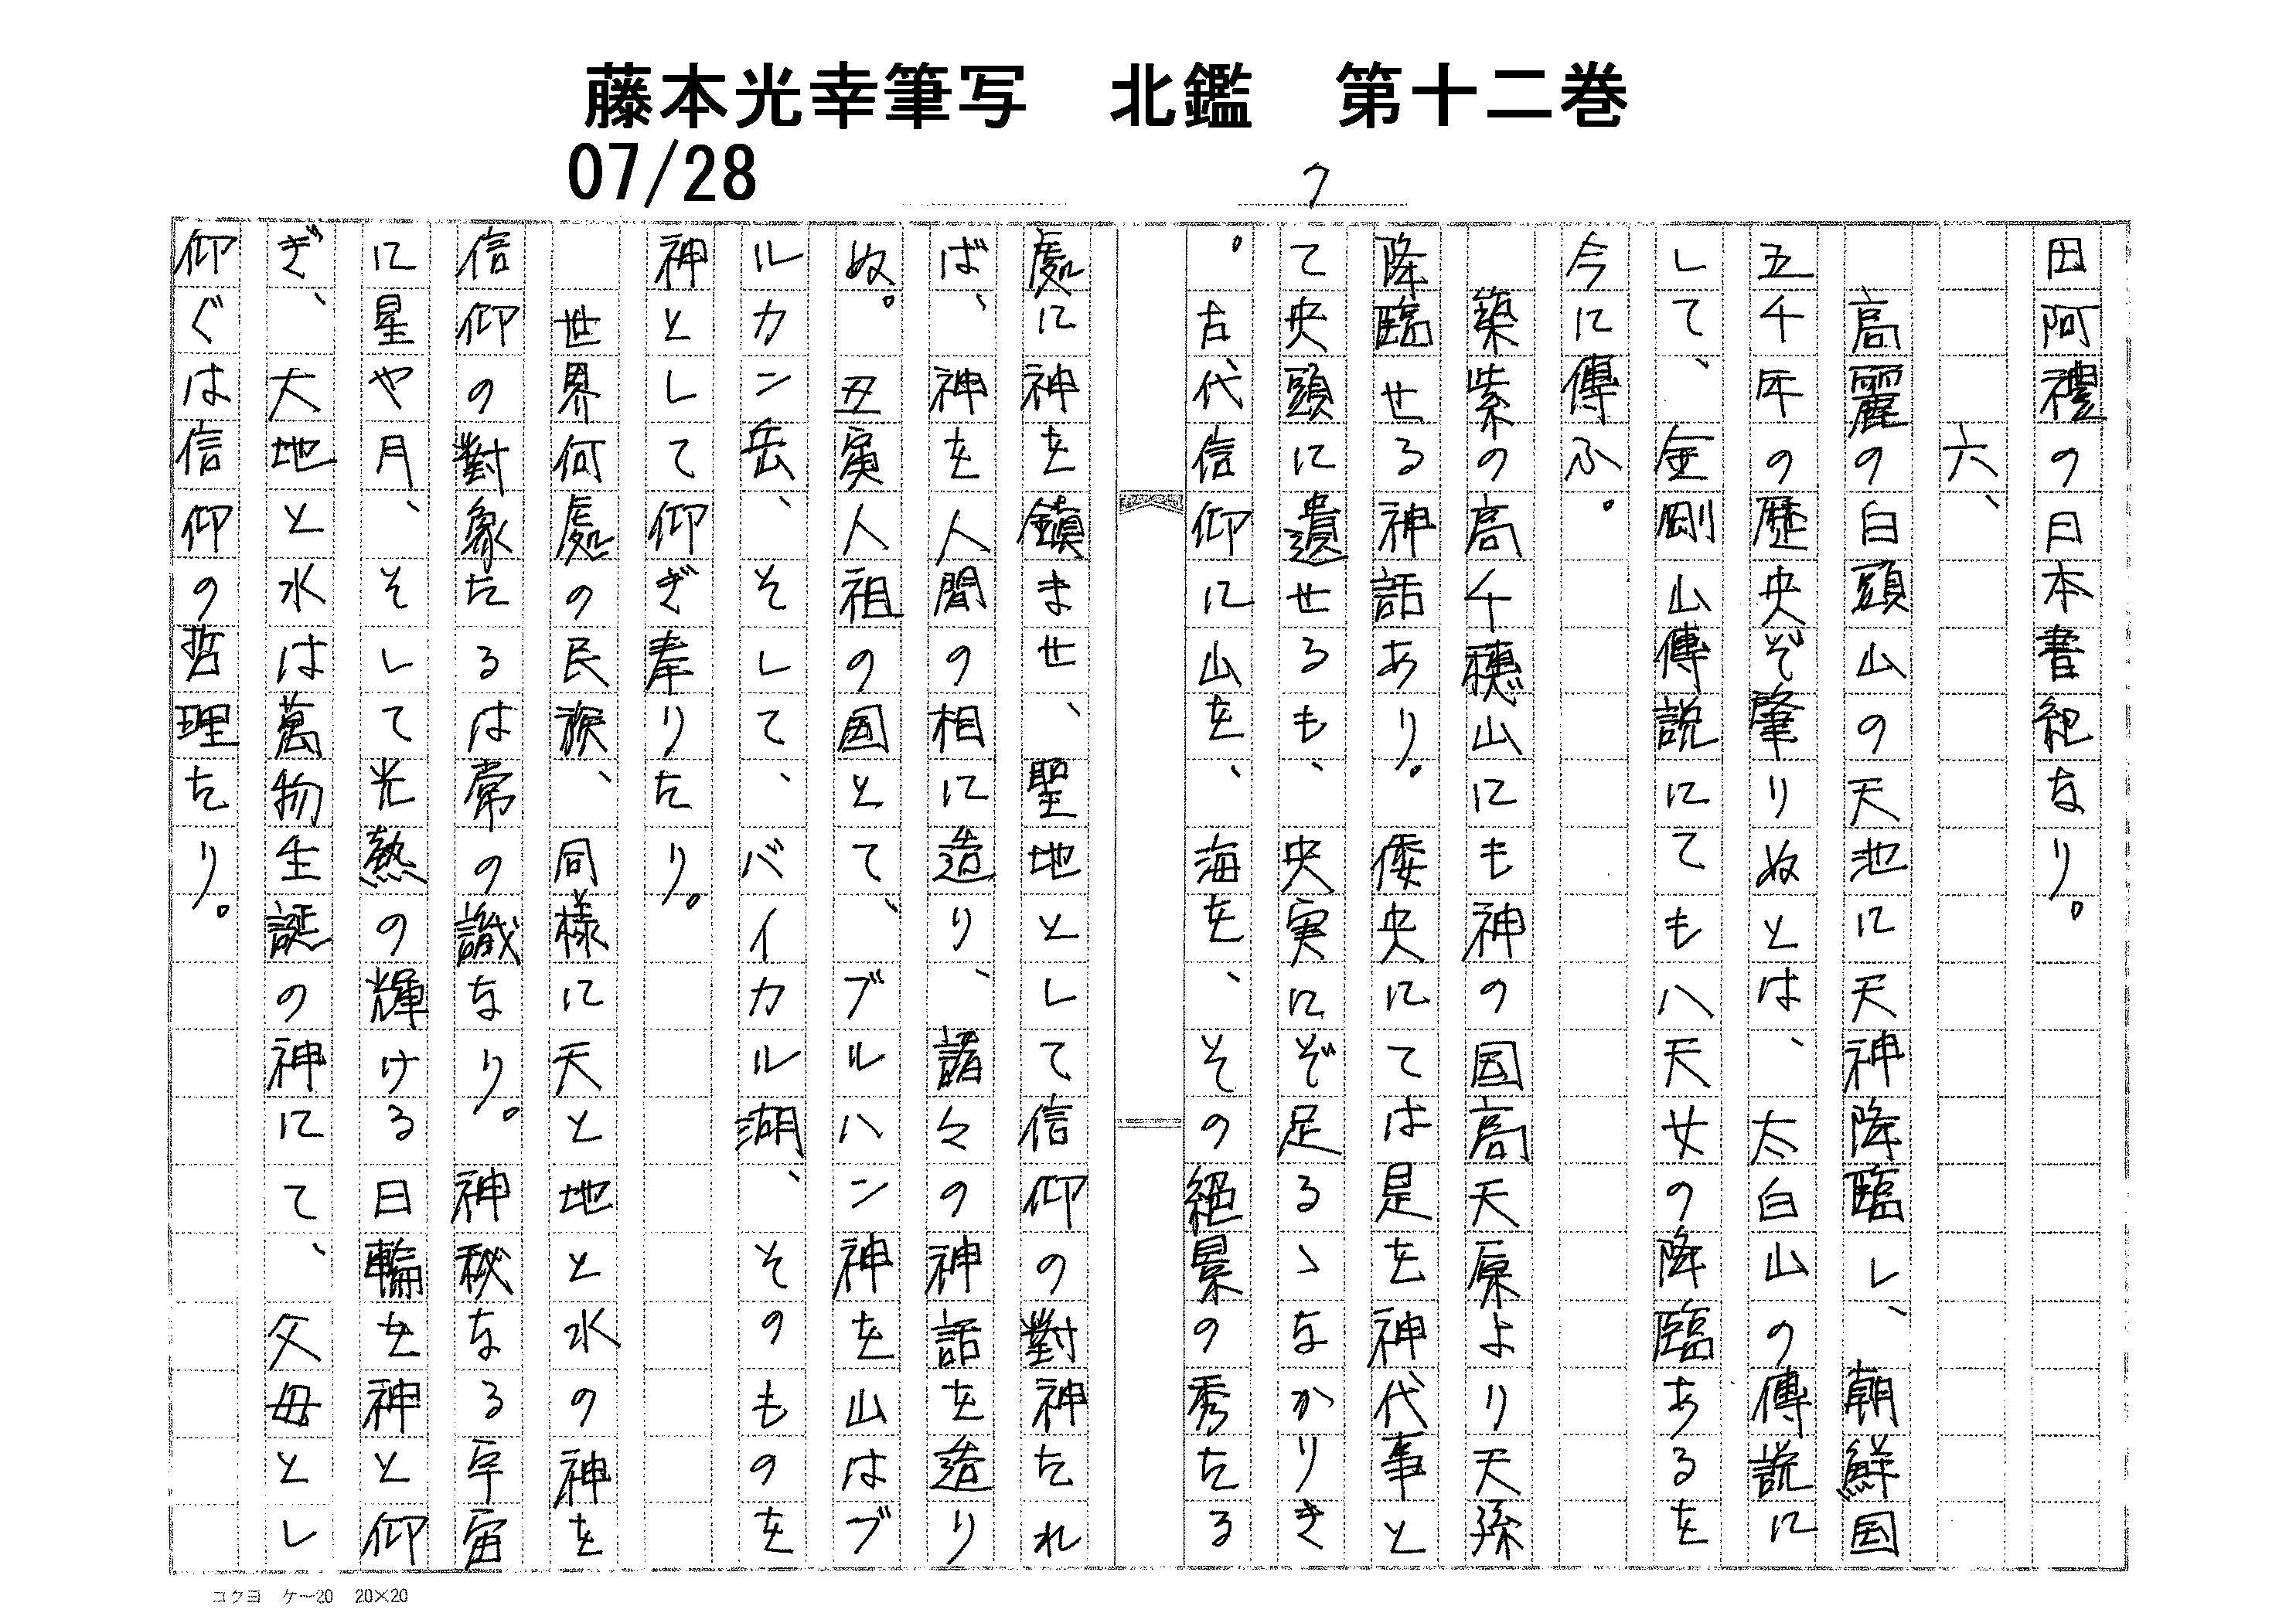 藤本光幸筆写　北鑑　第十二巻
07/28
7
田阿禮の日本書紀なり。
六、
高麗の白頭山の天池に天神降臨し、朝鮮国
五千年の歴史ぞ肇りぬとは、太白山の傳説に
して、金剛山傳説にても八天女の降臨あるを
今に傳ふ。
築紫の高千穂山にも神の国高天原より天孫
降臨せる神話あり。倭史にては是を神代事と
て史頭に遺せるも、史実にぞ足るゝなかりき
。古代信仰に山を、海を、その絕景の秀たる
處に神を鎮ませ、聖地として信仰の對神たれ
ば、神を人間の相に造り、諸々の神話を造り
ぬ。丑寅人祖の国とて、ブルハン神を山はブ
ルカン岳、そして、バイカル湖、そのものを
神として仰ぎ奉りたり。
世界何處の民族、同様に天と地と水の神を
信仰の對象たるは常の識なり。神秘なる宇宙
に星や月、そして光熱の輝ける日輪を神と仰
ぎ、大地と水は萬物生誕の神にて、父母とし
仰ぐは信仰の哲理たり。
コクヨ　ケー20　20×20